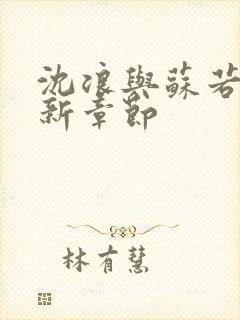 沈浪與蘇若
新章節
林有慧